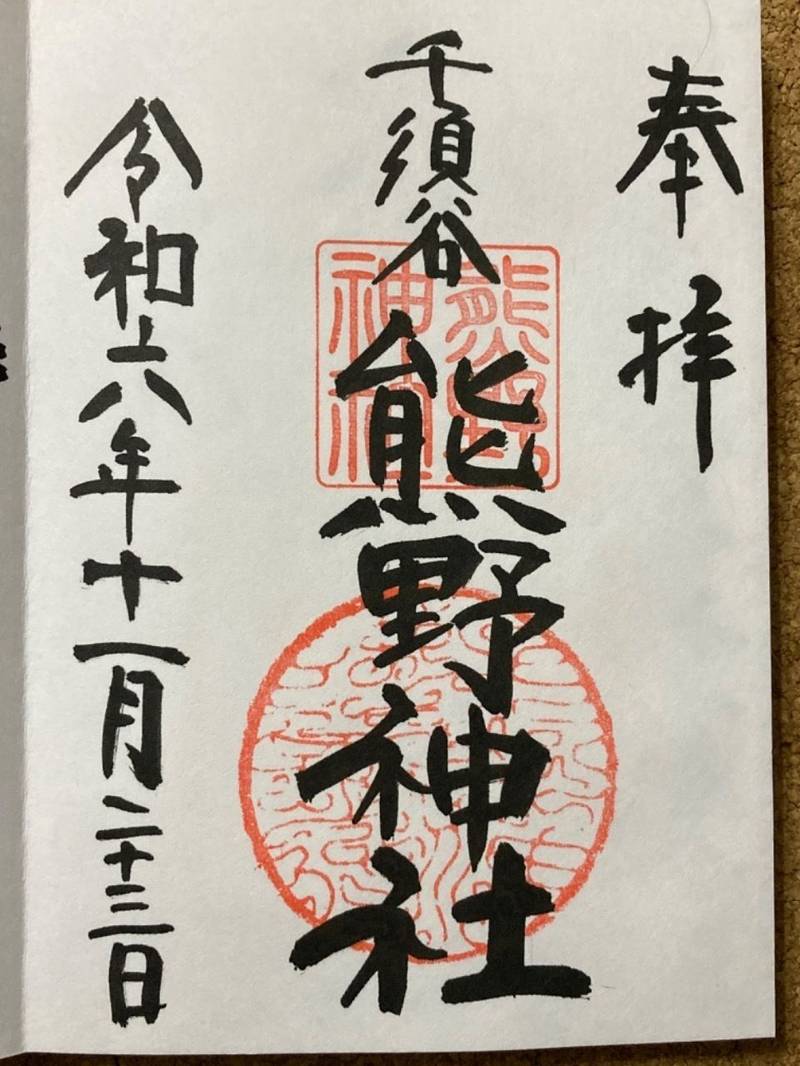 奉拝
千須谷
熊野神社
熊野神社
令和六年十一月二十三日